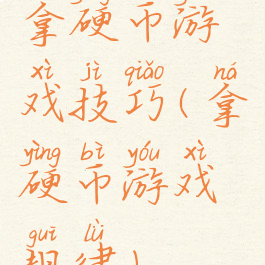 拿硬币游
xì jì qiǎo ná
戏技巧(拿
yìng bì yóu xì
硬币游戏
guī lǜ
规律)